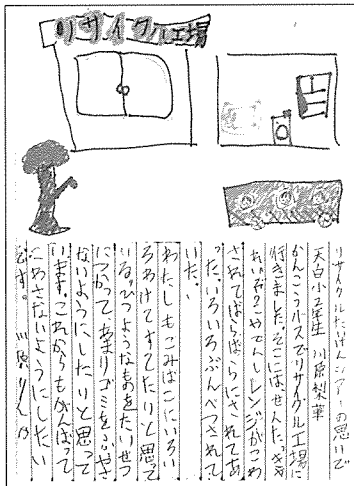 リサイクル工場
リサイクルたいけんツアーの思いで
天白小2年生 川原梨華
かんこうバスでリサイクル工場に
行きました。そこには、せんたっきき
れいぞうこやでんしレンジがこわ
されてばらばらにされてあ
った。いろいろぶんべつされて
いた。
わたしもごみばこにいろい
ろわけてすてたりと思って
いる。ひつようなものをたいせつ
につかって、あまりゴミをふやさ
ないようにしたりと思って
います。これからもがんばって
こわさないようにしたい
です。